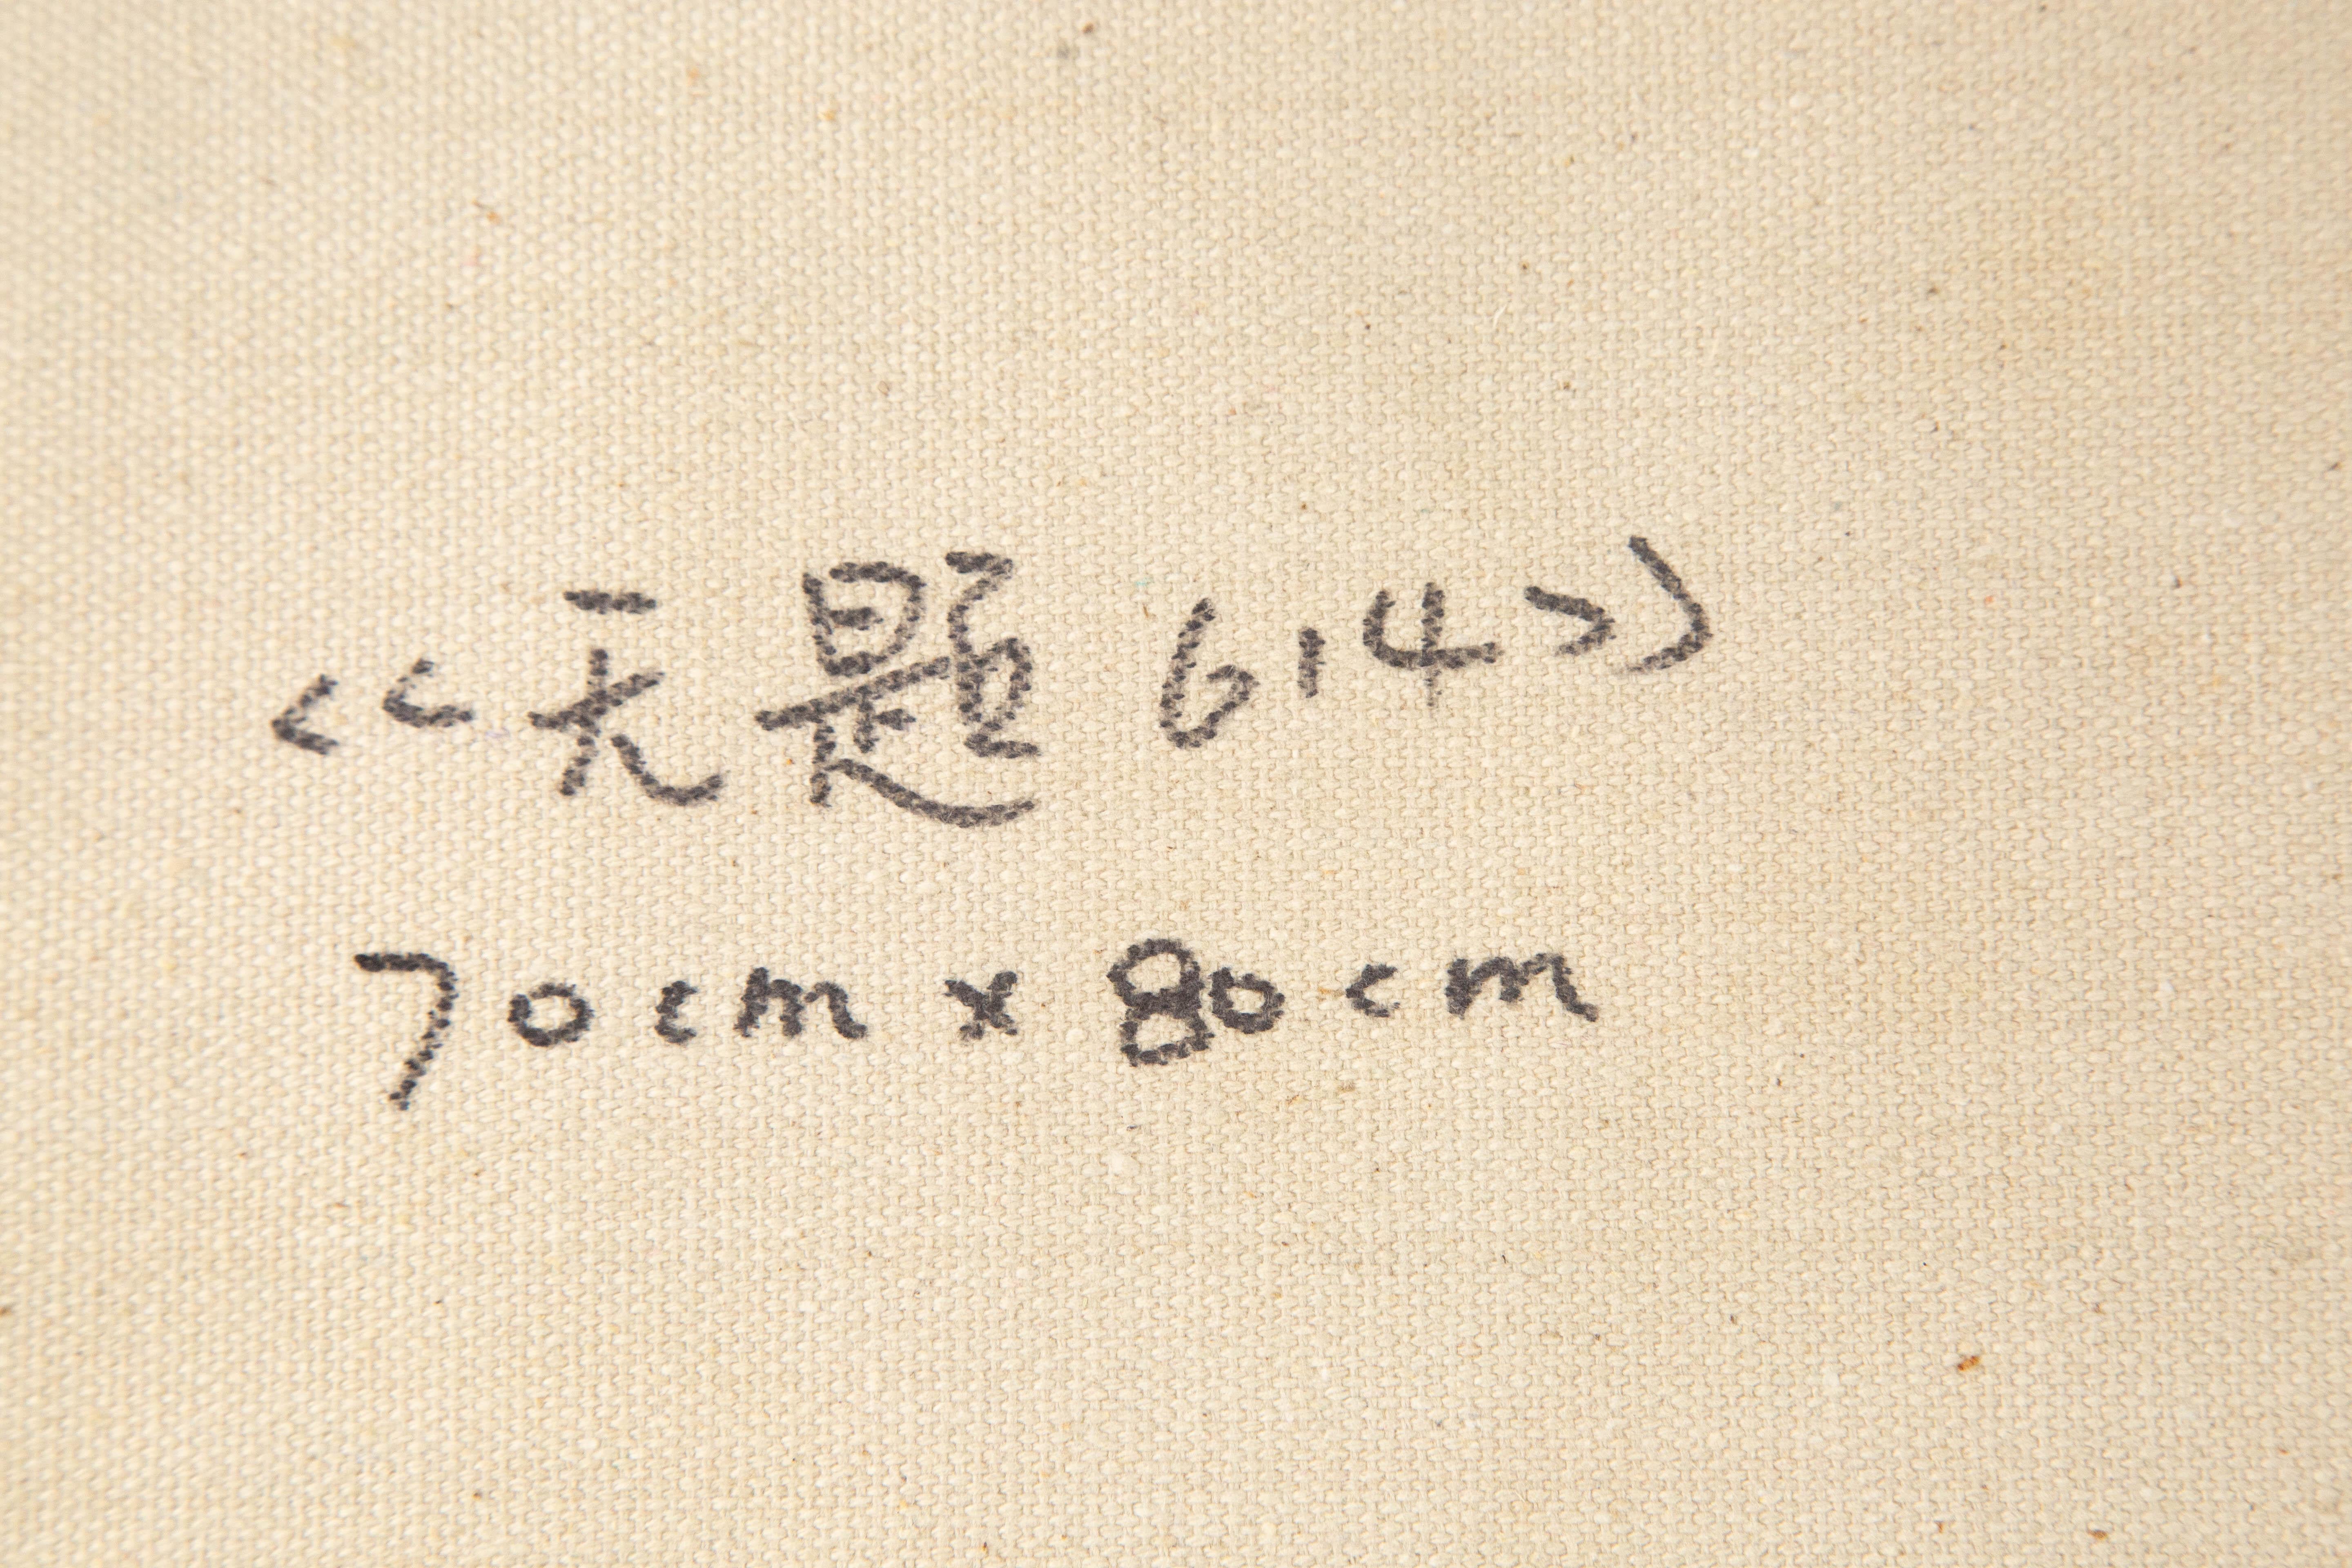 <<无题 614>>
70cm x 80cm